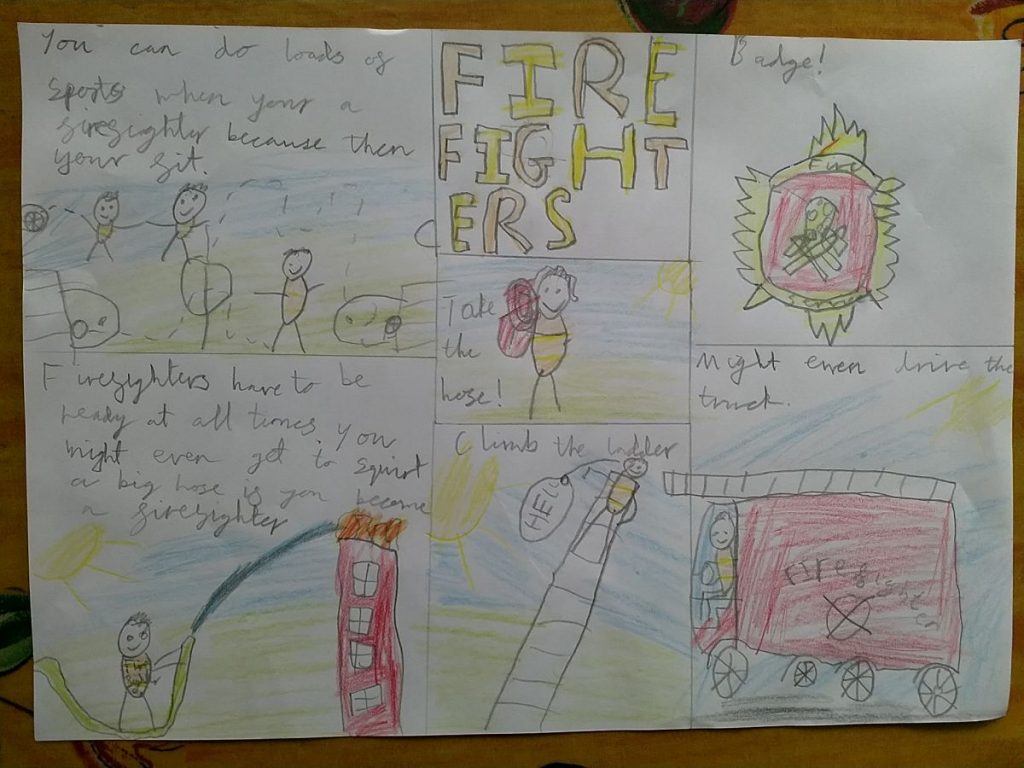 You can do loads of
sports when your a
firefighter because then
your fit.
FIRE
FIGHT
ERS
Badge!
Take
the
hose!
Firefighters have to be
ready at all times you
might even get to squirt
a big hose if you become
a firefighter
Climb the ladder
HELLO
Might even drive the
truck.
Firefighter